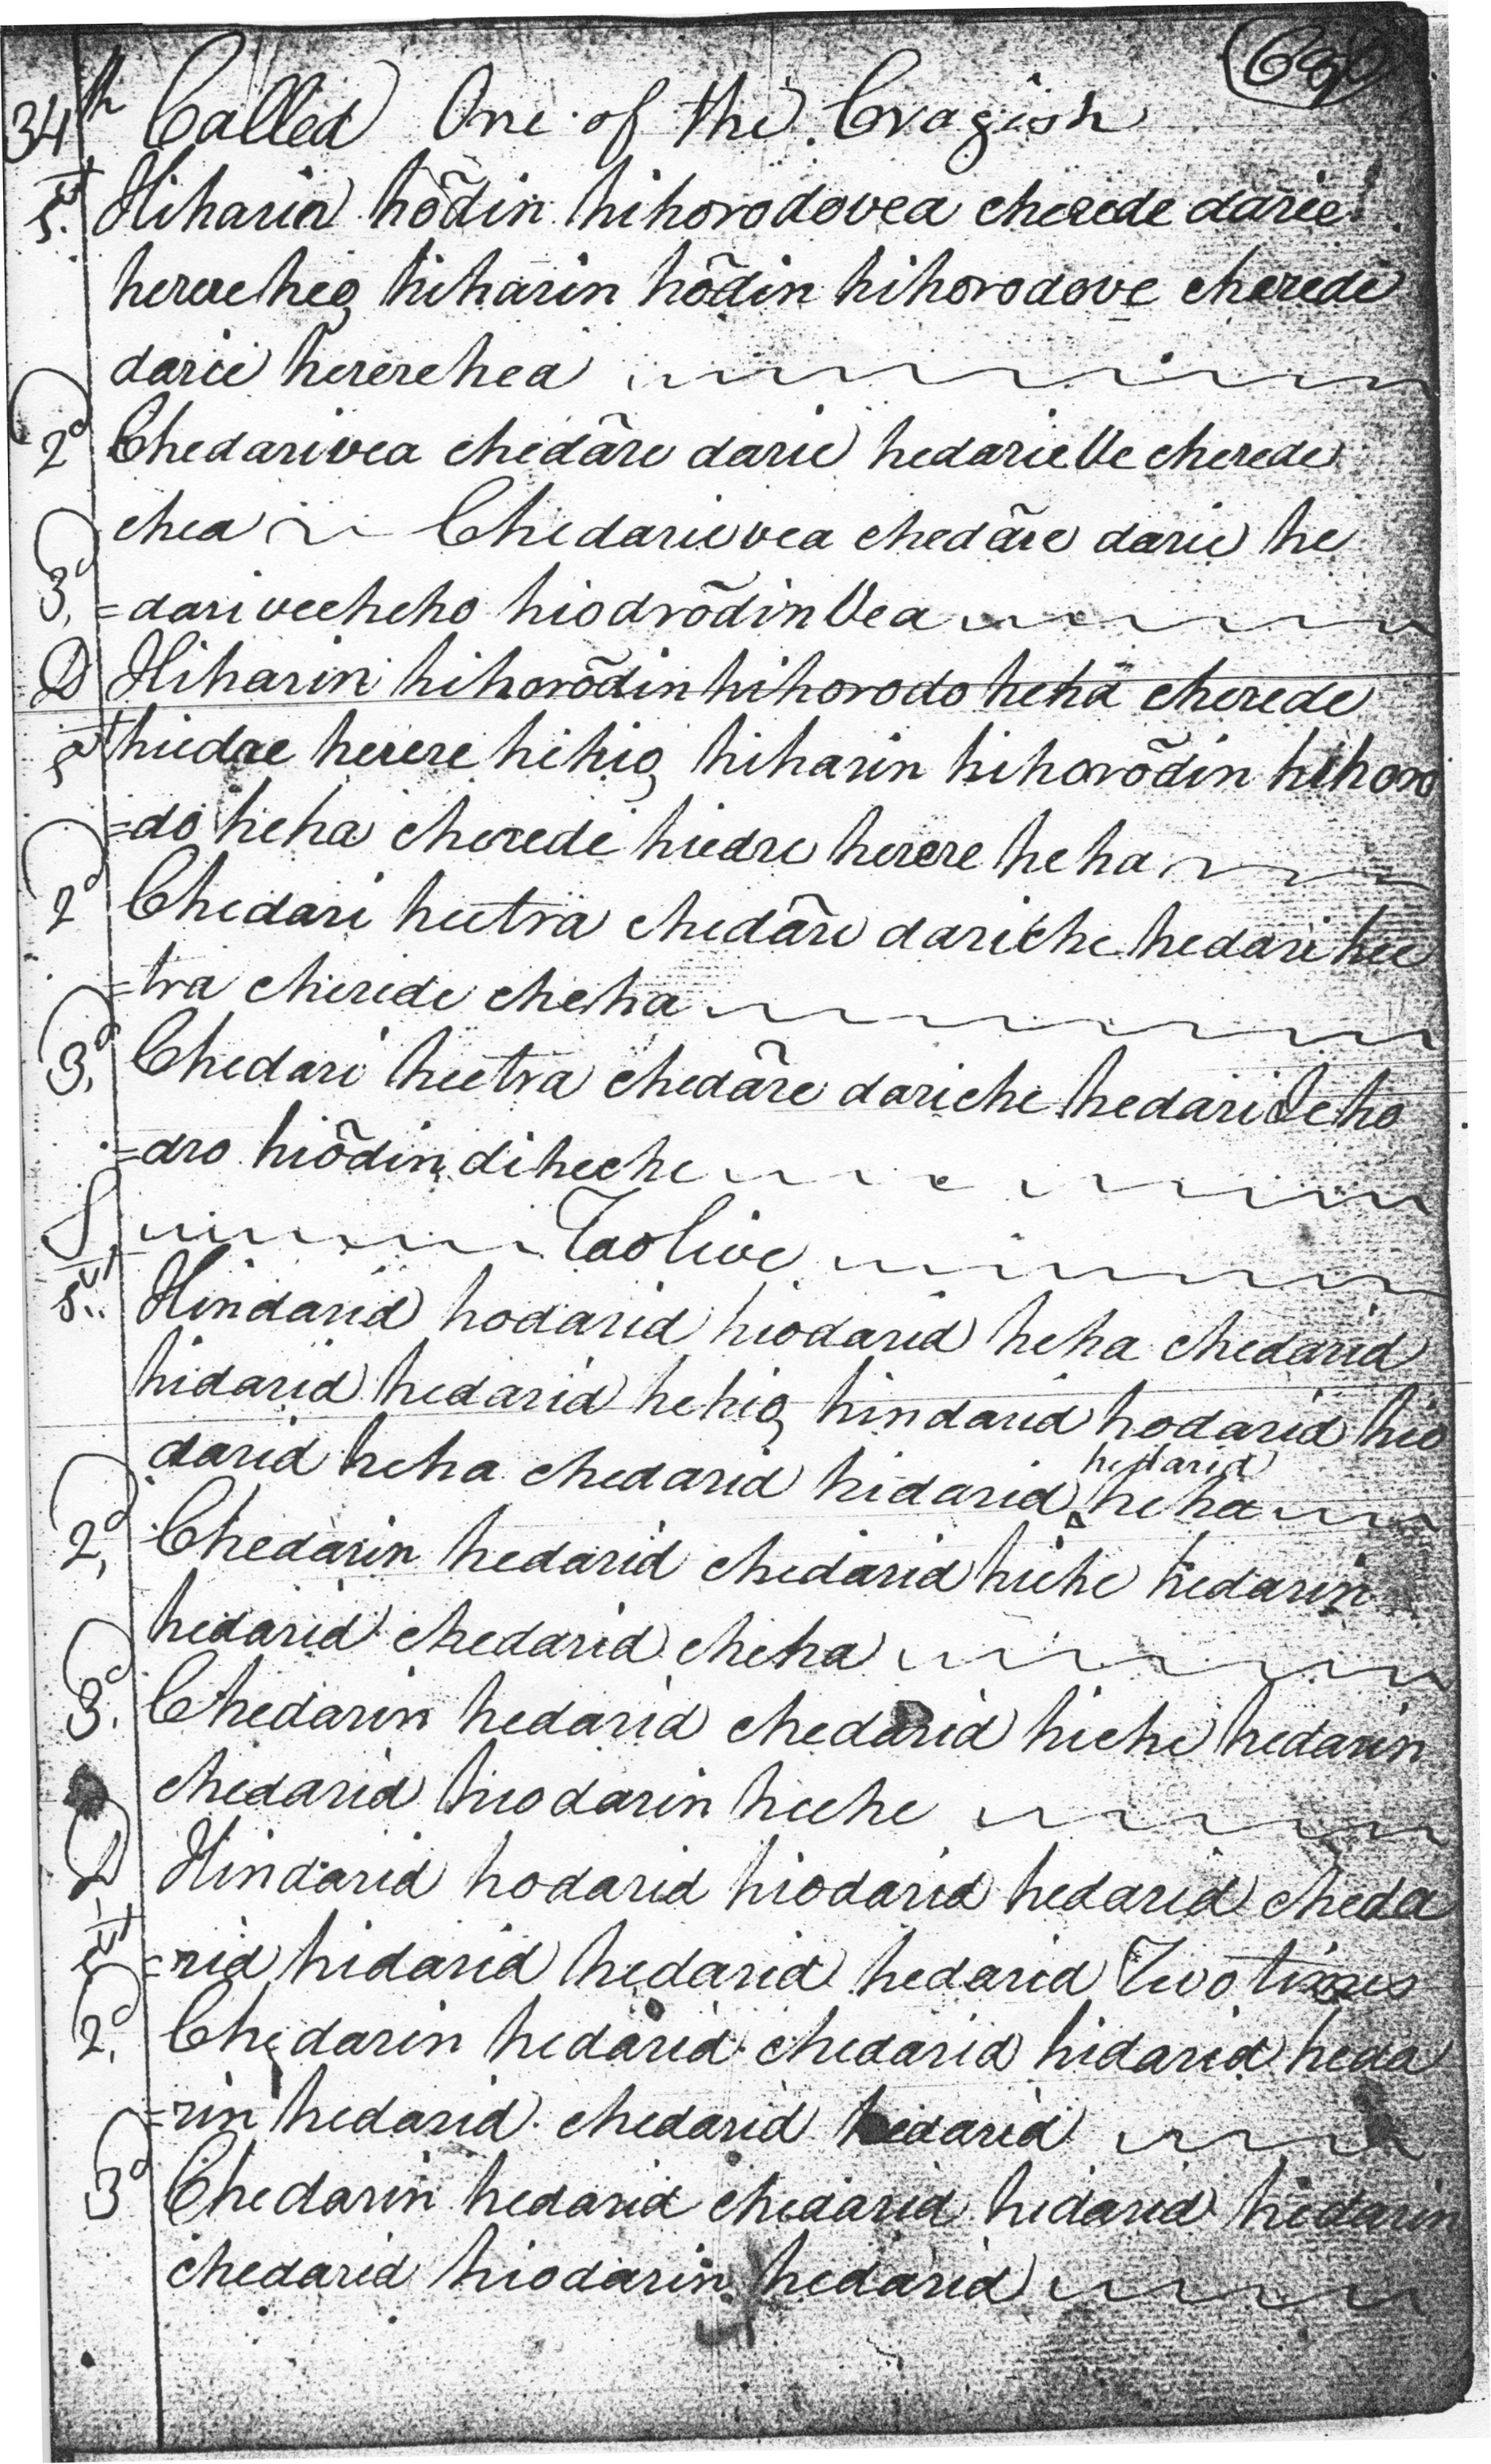 69
34th Called One of the Cragish
1st Hiharin hõdin hihorodovea cherede darie
herere heo, hiharin hõdin hihorodove cherede
darie hererehea
2d Chedarivea chedãre darie hedarieVe cherede
chea Chedarievea chedãre darie he
3d =dariveeheho hiodrõdinVea
D Hiharin hihorõdin hihorodo heha cherede
1st hiedre herere hehio, hiharin hihorõdin hihoro
=do heha cherede hiedre herere heha
2d Chedari heetra chedãre dariche hedari hee
=tra cherede cheha
3d Chedari heetra chedãre dariche hedari heho
=dro hiõdin diheehe
S Taolive
1st Hindarid hodarid hiodarid heha chedarid
hidarid hedarid hehio, hindarid hodarid hio
hedarid
darid heha chedarid hidarid heha
2d Chedarin hedarid chedarid hiehe hedarin
hedarid chedarid cheha
3d Chedarin hedarid chedarid hiche hedarin
chedarid hiodarin heehe
D Hindarid hodarid hiodarid hedarid cheda
1st =rid hidarid hedarid hedarid Two times
2d Chedarin hedarid chedarid hidarid heda
=rin hedarid chedarid hedarid
3d Chedarin hedarid chedarid hidarid hedarin
chedarid hiodarin hedarid